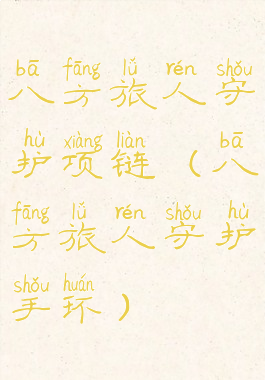 bā fāng lǚ rén shǒu
八方旅人守
hù xiàng liàn bā
护项链（八
fāng lǚ rén shǒu hù
方旅人守护
shǒu huán
手环）